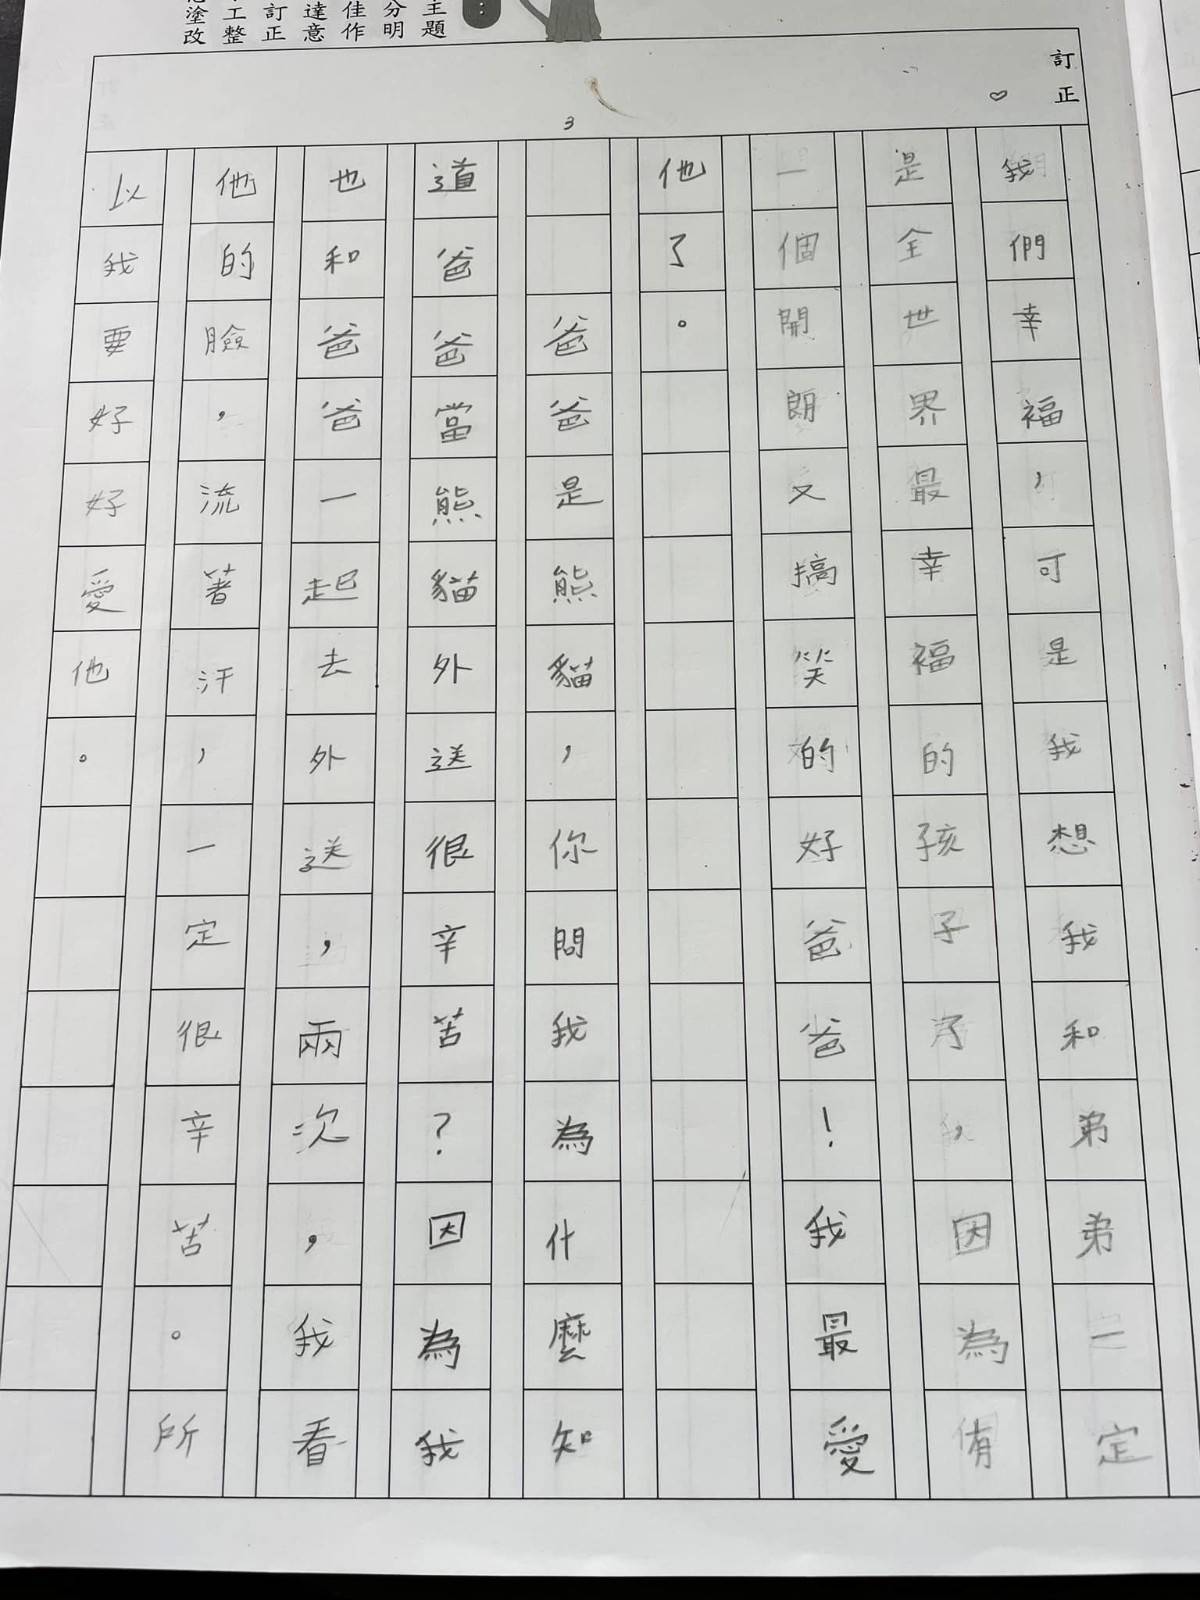 訂正
主題
分明
佳作
達意
訂正
工整
塗改
♡
3
我們幸福，可是我想我和弟弟一定
是全世界最幸福的孩子了，因為有
一個開朗又搞笑的好爸爸！我最愛
他了。
爸爸是熊貓，你問我為什麼知
道爸爸當熊貓外送很辛苦？因為我
也和爸爸一起去外送，兩次，我看
他的臉，流著汗，一定很辛苦。所
以我要好好愛他。